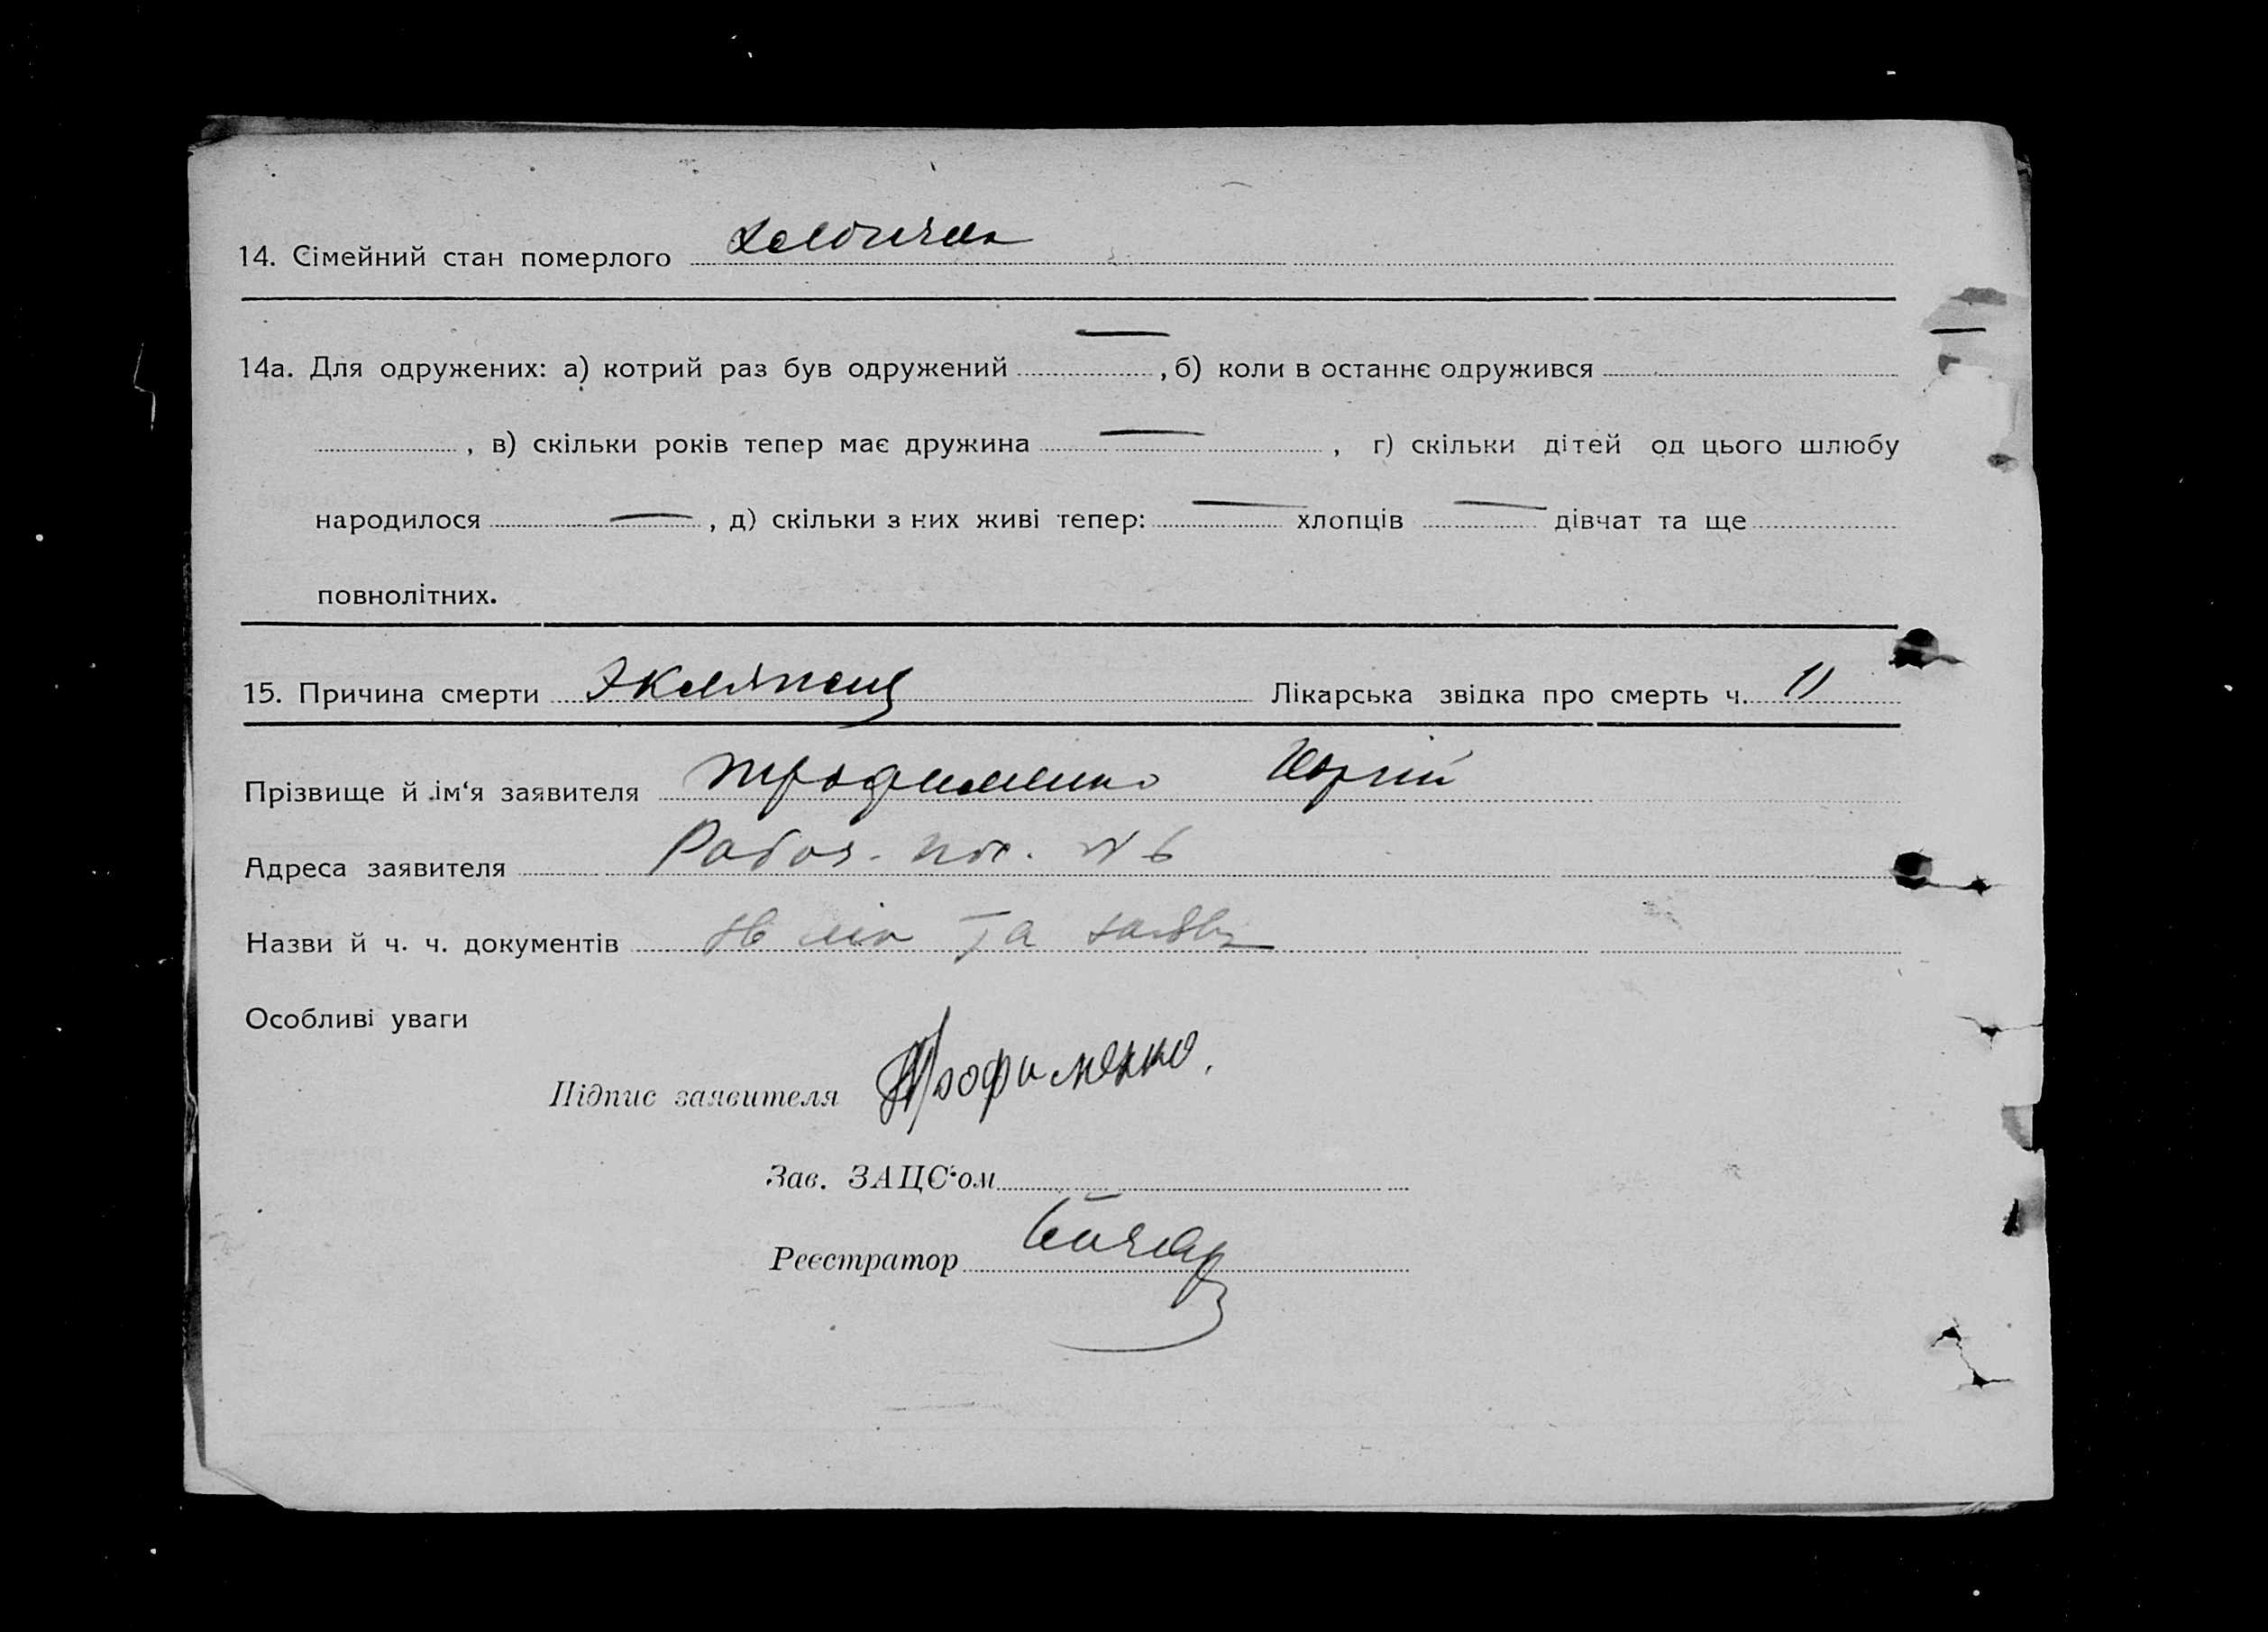 14. Сімейний стан померлого
14а. Для одружених: а) котрий раз був одружений — , б) коли в останнє одружився —
, в) скільки років тепер має дружина — , г) скільки дітей од цього шлюбу
народилося — , д) скільки з них живі тепер: — хлопців — дівчат та ще
повнолітних.
15. Причина смерти Лікарська звідка про смерть ч. 11
Прізвище й ім‘я заявителя Трофименко Юрий
Адреса заявителя Рабоч. пос. № 6
Назви й ч. ч. документів та заява
Особливі уваги
Підпис заявителя Трофименко.
Зав. ЗАЦС‘ом
Реєстратор